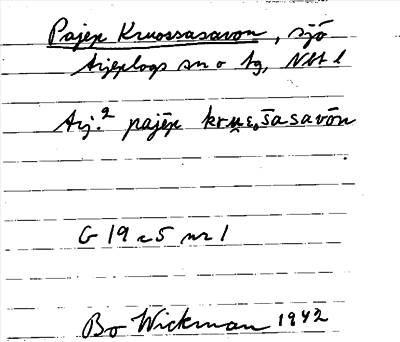 Pajep Kruossasavon, sjö
Arjeplogs sn o tg, Nbt l
Arj.² pajēp kru̯ɛ,s̄asavōn
G 19 c 5 nr 1
Bo Wickman 1942